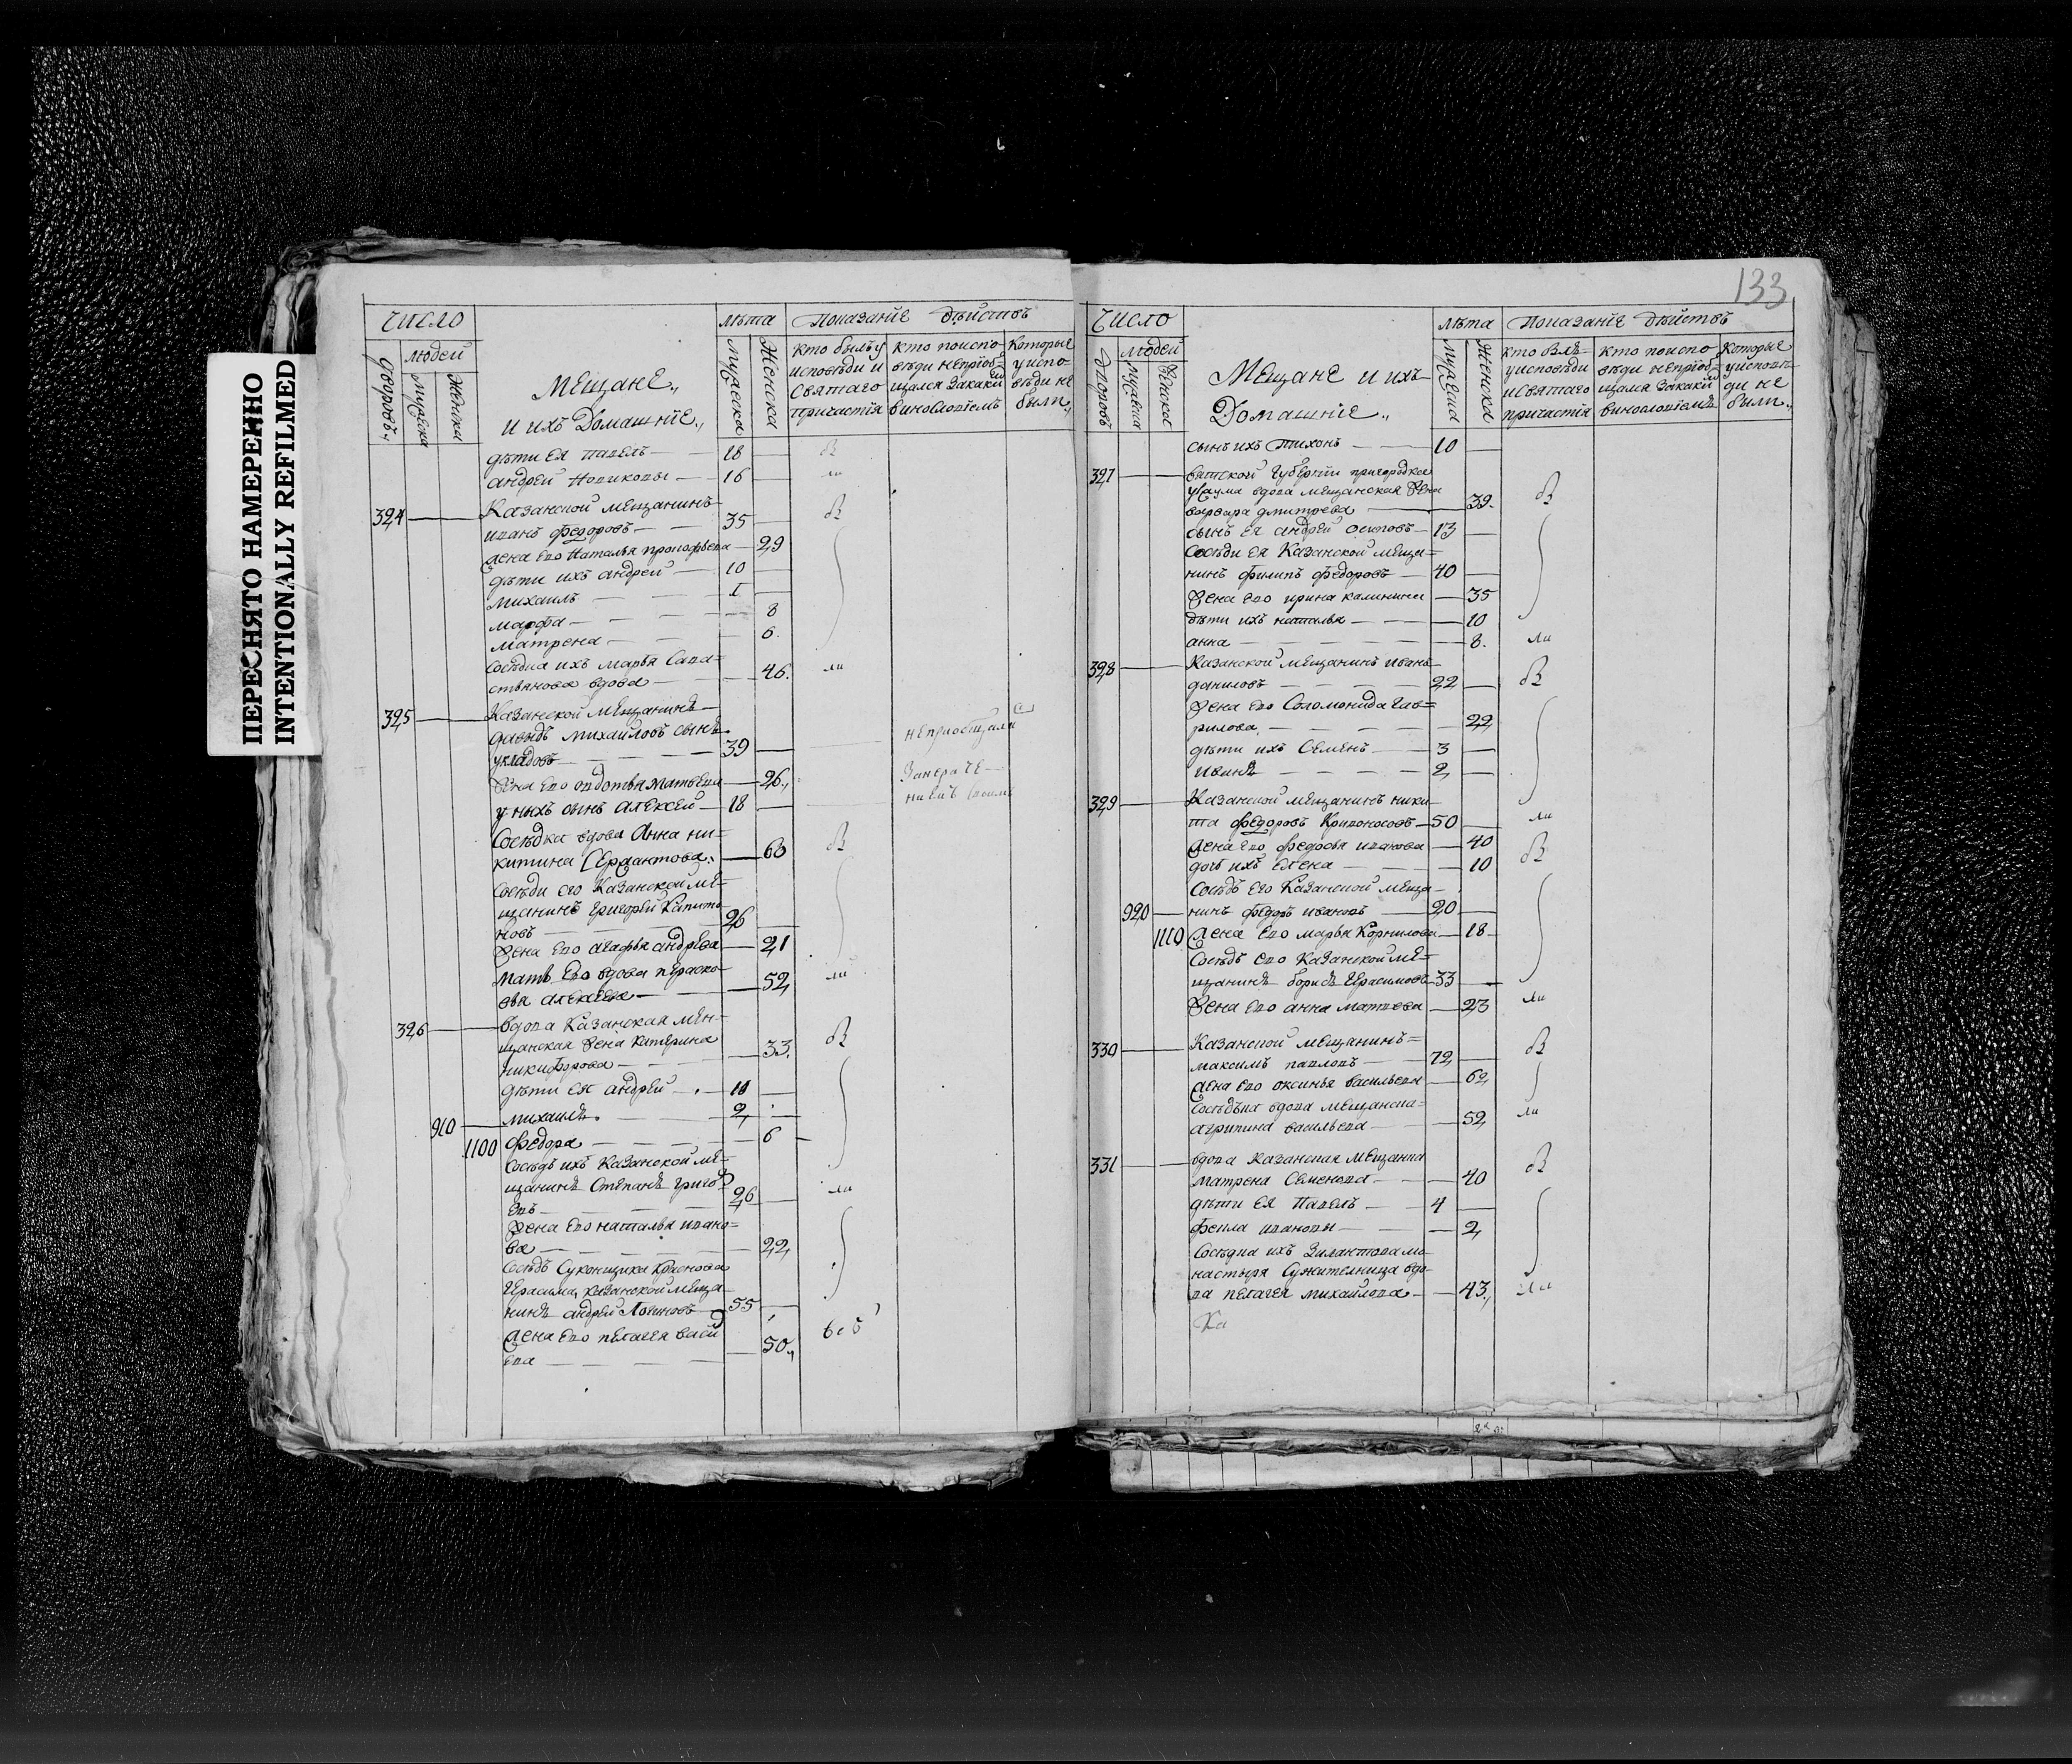 ПЕРЕСНЯТО НАМЕРЕННО
INTENTIONALLY REFILMED
число
людей
дворовъ
мужеска
женска
Мещане,,
и ихъ Домашнїе,,
лѣта
мужеска
женска
показанїе дѣйствъ
кто былъ у исповѣди и святаго причастїя
кто по исповѣди не прїобщался за каки виносло­вїемъ
которые у исповѣди не были,,
дѣти ея павелъ — 18 — в
андрей новиковы — 16 — ли
324 — Казанской мещанинъ
иванъ федоровъ — 35 — в
жена ево наталья прокофьева — 29
дѣти ихъ андрей — 10
михаилъ — 1
марфа — 8
матрена — 6.
сосѣдка ихъ марья сава=
стьянова вдова — 46. ли
325 — Казанской мещанинъ
давыдъ михайловъ сынъ
укладовъ — 39 — неприобщали
жена ево авдотья матвева — 26,,
у ныхъ сынъ алексей — 18
сосѣдка вдова Анна ни=
китина — 60 в
сосѣди его Казанской ме=
щанинъ григорей капито
новъ — 26
жена ево агафья андрева — 21
мать ево вдова параско=
вья алексева — 52, ли
326 — вдова казанская мен=
щанская жена катерина
никифорова — 33. в
дѣти ея андрей — 11
910 — михаилъ — 2
1100 федора — 6
сосѣдъ ихъ казанской ме=
щанинъ степанъ григо
евъ — 26 — ли
жена ево наталья ивано=
ва — 22,
сосѣдъ суконщика краснова
герасима, казанской меща
нинъ андрей логиновъ 55
жена ево пелагея васил
ева — 50.,
133
число
людей
дворовъ
мужеска
женска
Мещане и ихъ
Домашнїе,,
лѣта
мужеска
женска
показанїе дѣйствъ
кто былъ у исповѣди и святаго причастїя
кто по исповѣди не прїобщался за каки винословїемъ
которые у исповѣди не были,,
сынъ ихъ тихонъ — 10
327 — вятской губернїи пригородка
вдова мещанская жена
варвара дмитрева — 39. в
сынъ ея андрей осиповъ — 13
сосѣди ея казанской меща=
нинъ филипъ федоровъ — 40
жена ево ирина калинина — 35
дѣти ихъ наталья — 10
анна — 8. ли
328 — казанской мещанинъ иванъ
даниловъ — 22 — в
жена ево соломонида гав=
рилова — 22
дѣти ихъ семенъ — 3
иванъ — 2
329 — казанской мещанинъ ники=
та федоровъ кривоносовъ — 50 ли
жена ево федосья иванова — 40 в
дочь ихъ елена — 10
сосѣдъ его казанской меща=
920 — нинъ федоръ ивановъ — 20
1110 жена ево марья корнилова — 18
сосѣдъ ево казанской ме=
щанинъ борисъ герасимовъ — 33
жена ево анна матвева — 23 ли
330 — казанской мещанинъ=
максимъ павловъ — 72 — в
жена ево оксинья васильева — 62
сосѣдка вдова мещанска=
агрипина васильева — 52 ли
331 — вдова казанская мещанка
матрена семенова — 40 в
дѣти ея павелъ — 4
фекла ивановы — 2
сосѣдка ихъ зилантова мо=
настыря служителница вдо=
ва пелагея михайлова — 43., ли
Ка